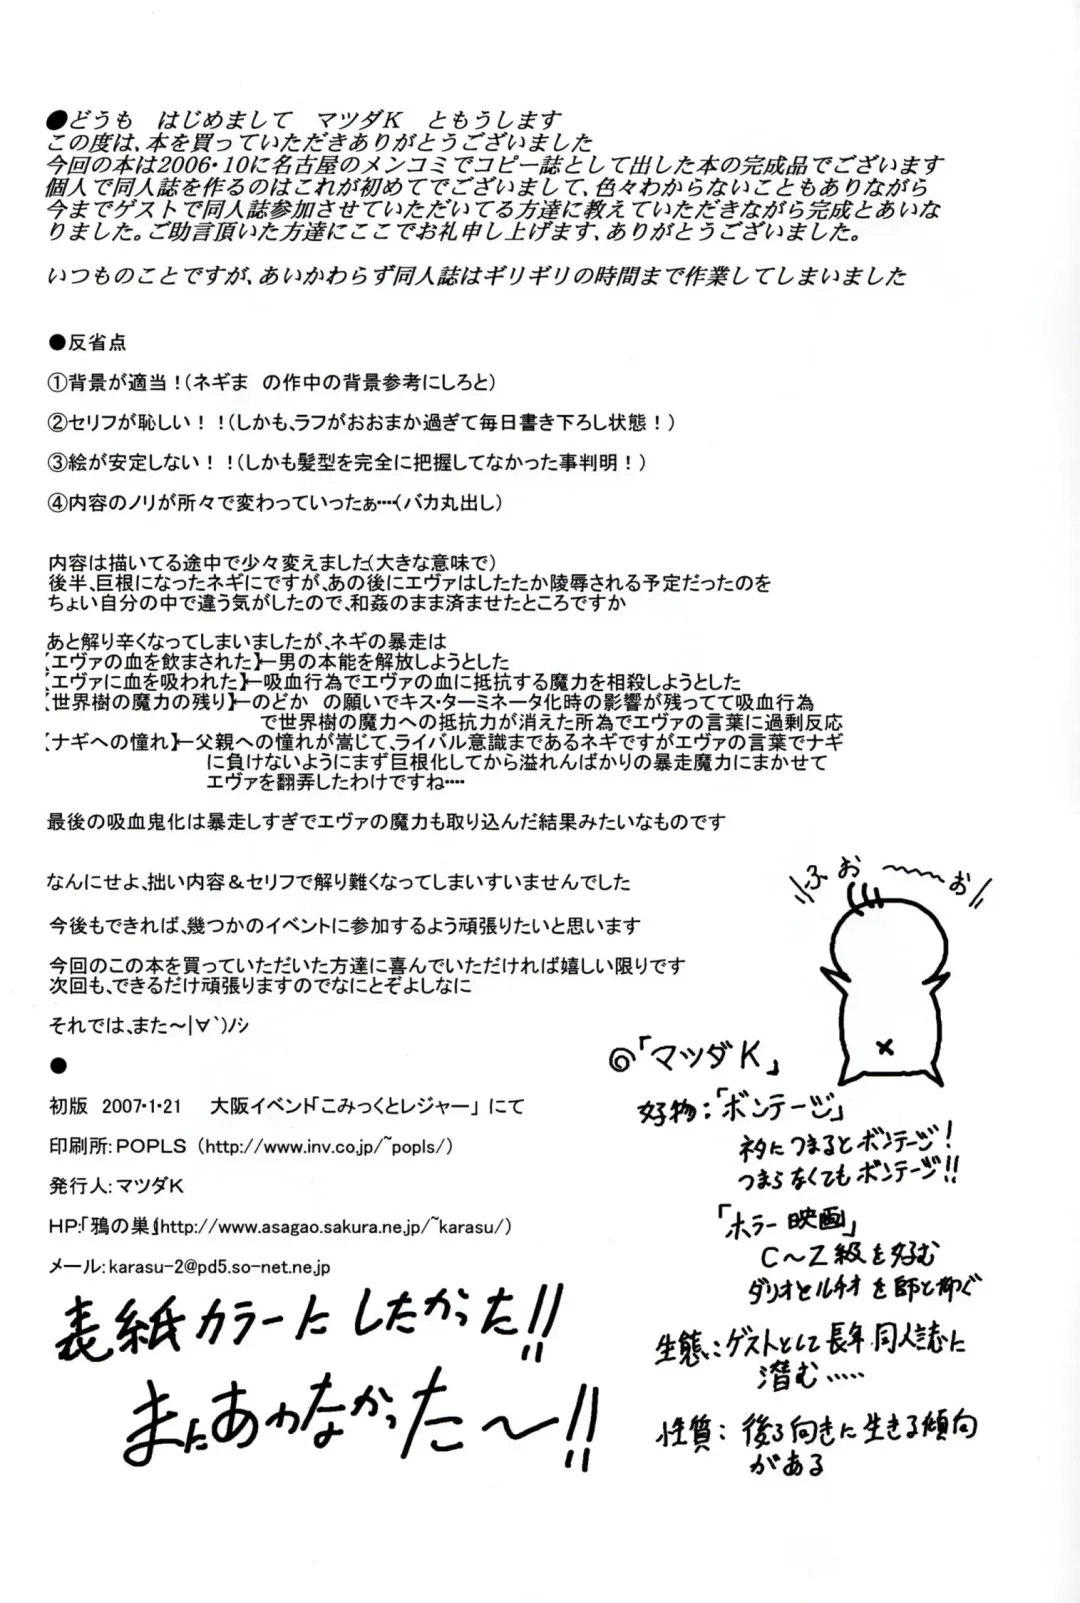 ●どうも　はじめまして　マツダK　ともうします
この度は、本を買っていただきありがとうございました
今回の本は2006・10に名古屋のメンコミでコピー誌として出した本の完成品でございます
個人で同人誌を作るのはこれが初めてでございまして、色々わからないこともありながら
今までゲストで同人誌参加させていただいてる方達に教えていただきながら完成とあいな
りました。ご助言頂いた方達にここでお礼申し上げます、ありがとうございました。
いつものことですが、あいかわらず同人誌はギリギリの時間まで作業してしまいました
●反省点
①背景が適当！(ネギま　の作中の背景参考にしろと)
②セリフが恥しい！！(しかも、ラフがおおまか過ぎて毎日書き下ろし状態！)
③絵が安定しない！！(しかも髪型を完全に把握してなかった事判明！)
④内容のノリが所々で変わっていったぁ････(バカ丸出し)
内容は描いてる途中で少々変えました(大きな意味で)
後半、巨根になったネギにですが、あの後にエヴァはしたたか陵辱される予定だったのを
ちょい自分の中で違う気がしたので、和姦のまま済ませたところですか
あと解り辛くなってしまいましたが、ネギの暴走は
【エヴァの血を飲まされた】←男の本能を解放しようとした
【エヴァに血を吸われた】←吸血行為でエヴァの血に抵抗する魔力を相殺しようとした
【世界樹の魔力の残り】←のどか　の願いでキス・ターミネータ化時の影響が残ってて吸血行為
で世界樹の魔力への抵抗力が消えた所為でエヴァの言葉に過剰反応
【ナギへの憧れ】←父親への憧れが嵩じて、ライバル意識まであるネギですがエヴァの言葉でナギ
に負けないようにまず巨根化してから溢れんばかりの暴走魔力にまかせて
エヴァを翻弄したわけですね････
最後の吸血鬼化は暴走しすぎでエヴァの魔力も取り込んだ結果みたいなものです
なんにせよ、拙い内容＆セリフで解り難くなってしまいすいませんでした
今後もできれば、幾つかのイベントに参加するよう頑張りたいと思います
今回のこの本を買っていただいた方達に喜んでいただければ嬉しい限りです
次回も、できるだけ頑張りますのでなにとぞよしなに
それでは、また～|∀`)ﾉｼ
●
初版　2007・1・21　大阪イベント「こみっくとレジャー」にて
印刷所：POPLS（http://www.inv.co.jp/~popls/）
発行人：マツダK
HP：「鴉の巣」(http://www.asagao.sakura.ne.jp/~karasu/)
メール：karasu-2@pd5.so-net.ne.jp
表紙カラーにしたかった!!
まにあわなかった～!!
ふぉ～～ぉ
◎「マツダK」
好物：「ボンテージ」
ネタにつまるとボンテージ！
つまらなくてもボンテージ!!
「ホラー映画」
C～Z級を好む
ダリオとルチオを師と仰ぐ
生態：ゲストとして長年同人誌に
潜む‥‥‥
性質：後ろ向きに生きる傾向
がある